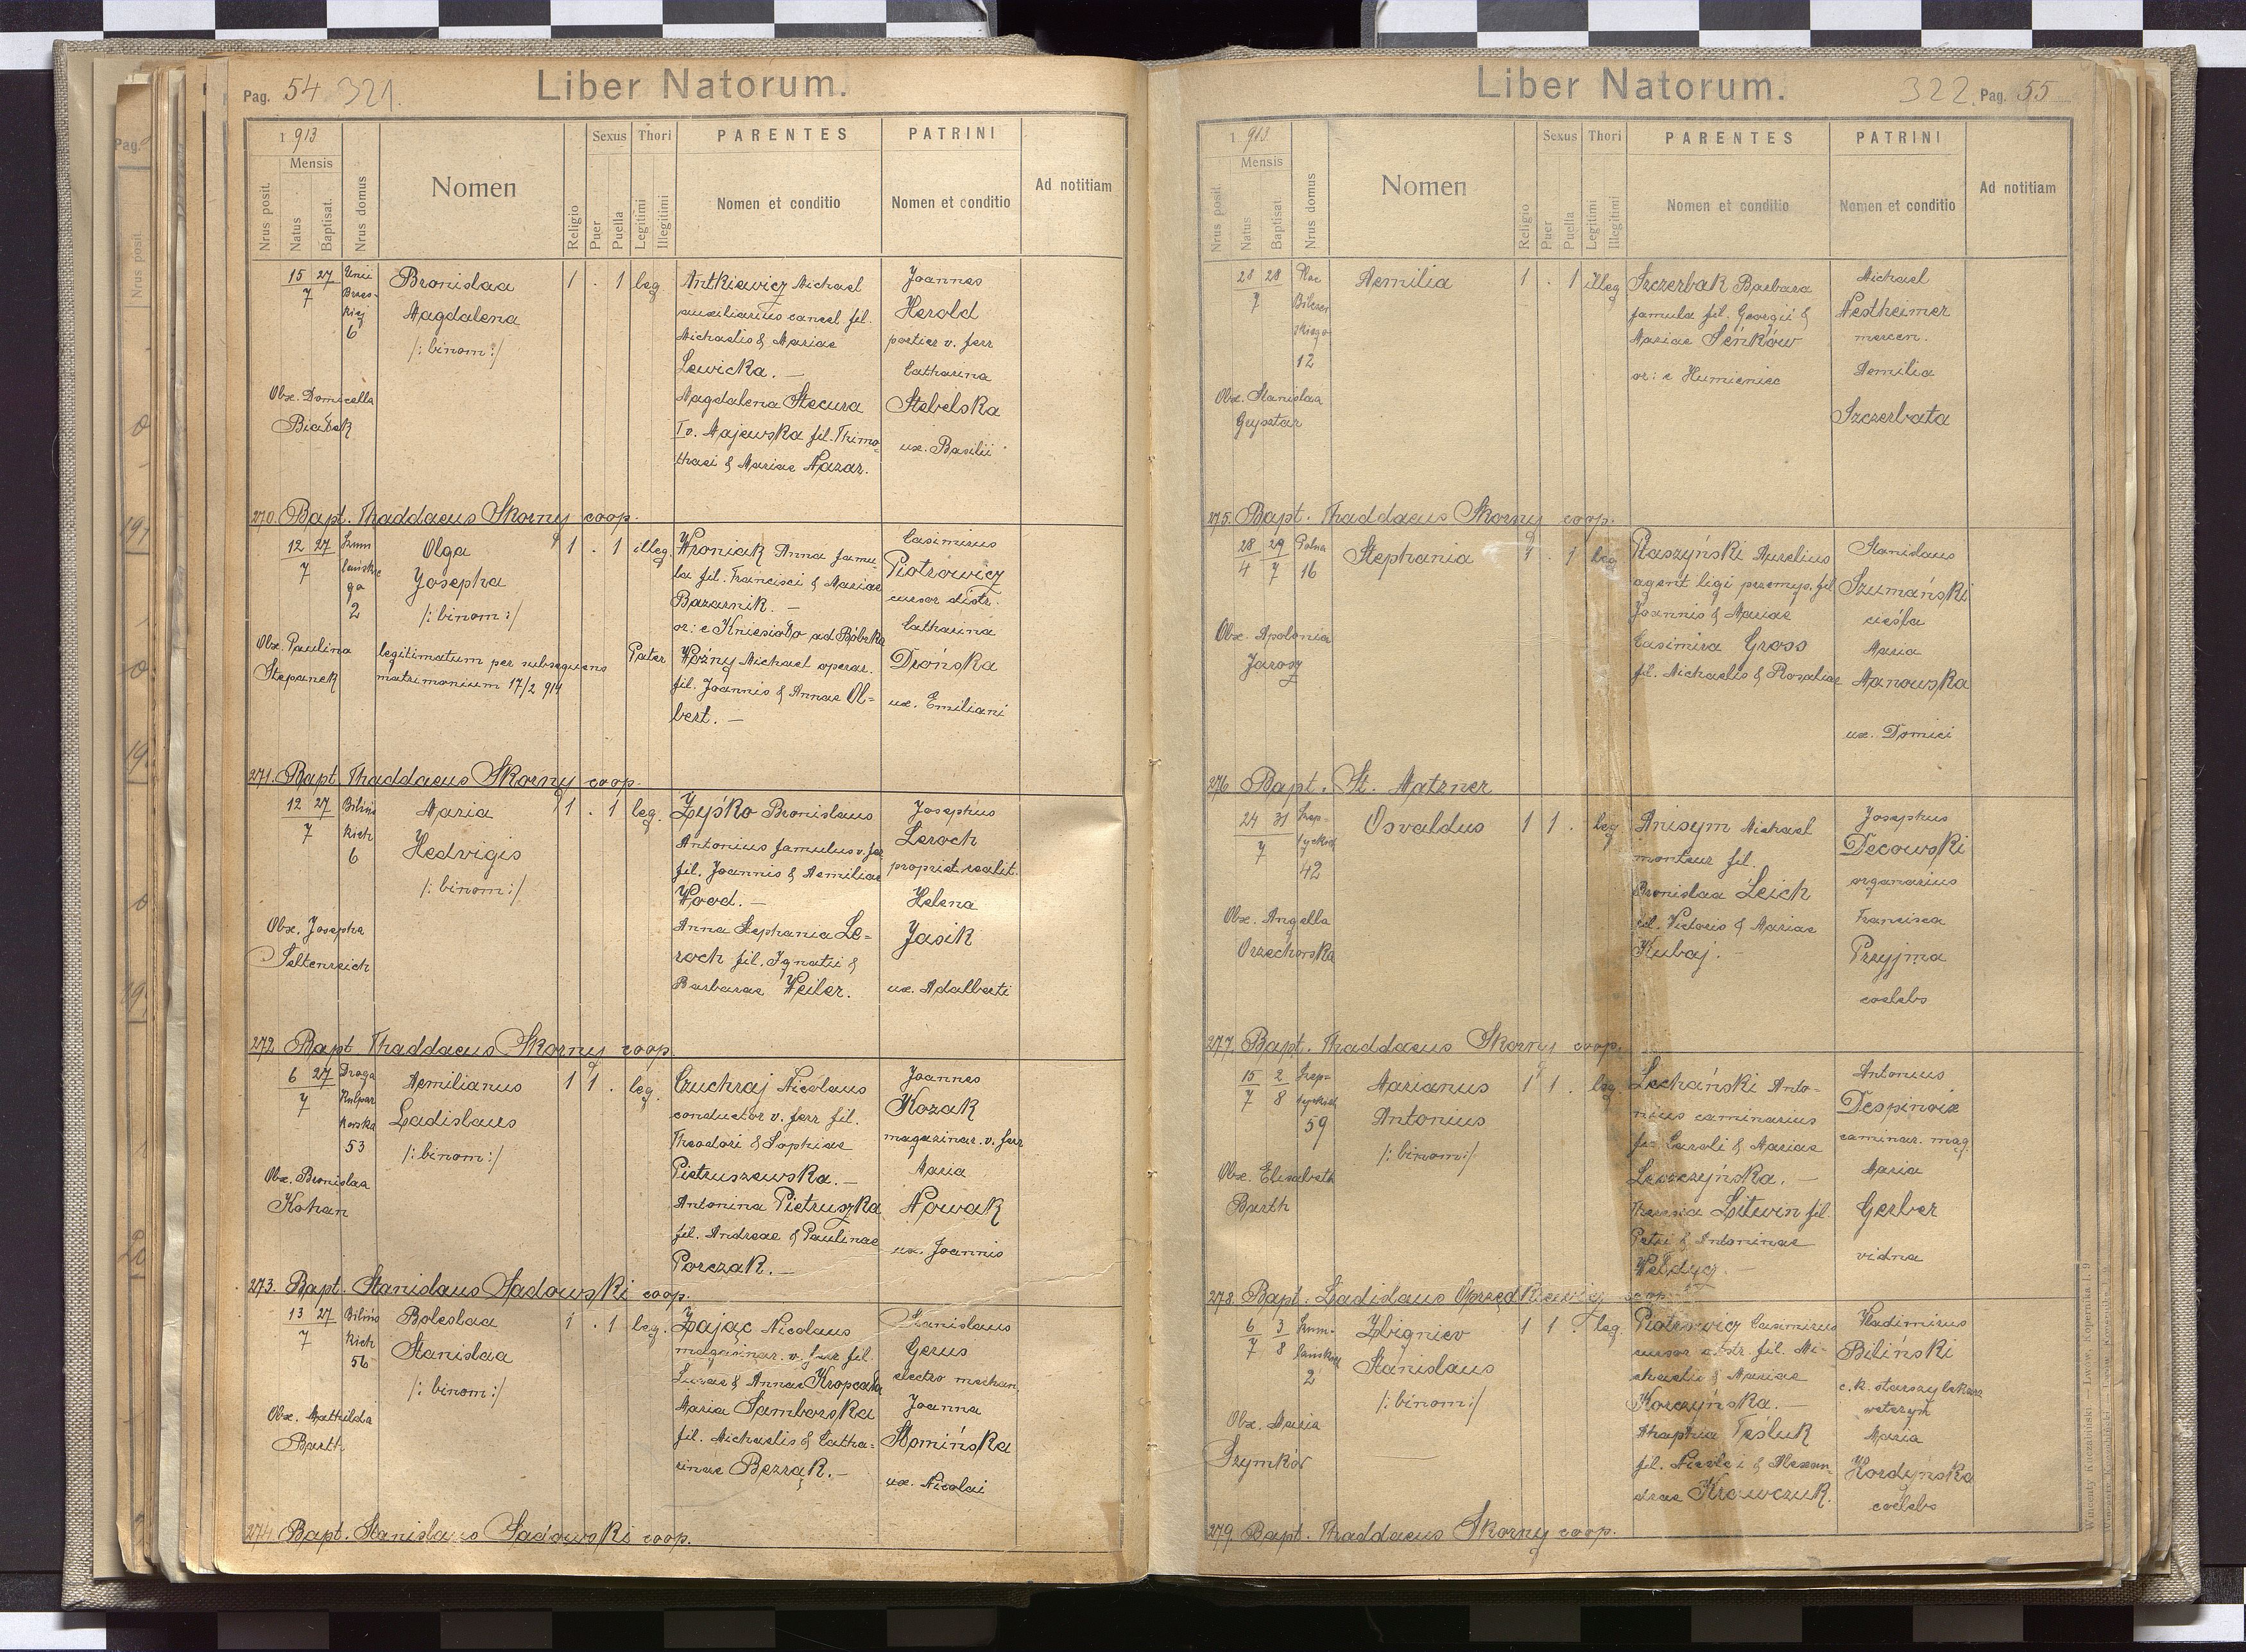 Pag. 54 321.
Liber Natorum.
1913
Mensis
Nrus posit.
Natus
Baptisat.
Nrus domus
Nomen
Religio
Sexus
Puer
Puella
Thori
Legitimi
Illegitimi
PARENTES
Nomen et conditio
PATRINI
Nomen et conditio
Ad notitiam
15 27
7
Unii
Brzes-
kiej
6
Bronislaa
Magdalena
/: binom :/
1 . 1 leg
Antkiewicz Michael
auxiliarius cancel. fil.
Michaelis & Mariae
Lewicka. —
Magdalena Stecura
Iv. Majewska fil. Thimo-
thaei & Mariae Nazar.
Joannes
Herold
portier v. ferr
Catharina
Stebelska
ux. Basilii
Obx. Domicella
270. Bapt. Thaddaeus Skorny coop.
12 27
7
Szum
lańskie
go
2
Olga
Josepha
/: binom :/
1 . 1 illeg.
Wroniak Anna famu-
la fil. Francisci & Mariae
Bazarnik. —
or: e Kniesioło ad Bóbrka
Pater
Woźny Michael operar.
fil. Joannis & Annae Ol=
bert. —
Casimirus
Piotrowicz
cursor distr.
Catharina
Drońska
ux. Emiliani
Obx. Paulina
Stepanek
legitimatum per subsequens
matrimonium 17/2 914
271. Bapt. Thaddaeus Skorny coop.
12 27
7
Bilińs
kich
6
Maria
Hedvigis
/: binom :/
1 . 1 leg.
Zyśko Bronislaus
Antonius famulus v. fer
fil. Joannis & Aemiliae
Wood. —
Anna Stephania Le=
roch fil. Ignatii &
Barbarae Weiler.
Josephus
Leroch
propriet. realit.
Helena
Jasik
ux. Adalberti
Obx. Josepha
Seltenreich
272 Bapt. Thaddaeus Skorny coop.
6 27
7
Droga
Kulpar
kowska
53
Aemilianus
Ladislaus
/: binom :/
1 1 . leg.
Czuchraj Nicolaus
conductor v. ferr fil.
Theodori & Sophiae
Pietruszewska. —
Antonina Pietruszka
fil. Andreae & Paulinae
Porczak. —
Joannes
Kozak
magazinar. v. ferr
Maria
Nowak
ux. Joannis
Obx. Bronislaa
Kohan
273. Bapt. Stanislaus Sadowski coop.
13 27
7
Bilińs
kich
56
Boleslaa
Stanislaa
/: binom :/
1 . 1 leg.
Zając Nicolaus
magazinar. v. ferr fil.
Lucae & Annae
Maria Samborska
fil. Michaelis & Catha-
rinae Bezrąk. —
Stanislaus
Gerus
electro mechan.
Joanna
Słomińska
ux. Nicolai
Obx. Mathilda
Barth
274 Bapt. Stanislaus Sadowski coop.
Liber Natorum.
322. Pag. 55
1913
Mensis
Nrus posit.
Natus
Baptisat.
Nrus domus
Nomen
Religio
Sexus
Puer
Puella
Thori
Legitimi
Illegitimi
PARENTES
Nomen et conditio
PATRINI
Nomen et conditio
Ad notitiam
28 28
7
Plac
Bilczew
skiego
12
Aemilia
1 . 1 illeg
Szczerbak Barbara
famula fil. Georgii &
Mariae Senków
or: e Humieniec
Michael
Nestheimer
mercen.
Aemilia
Szczerbata
Obx. Stanislaa
275. Bapt. Thaddaeus Skorny coop.
28 29
4 7
Polna
16
Stephania
1 . 1 leg
Ptaszyński Aurelius
agent ligi przemys. fil
Joannis & Mariae
Casimira Gross
fil. Michaelis & Rosaliae
Stanislaus
Szumański
cieśla
Maria
Manowska
ux. Domici
Obx. Apolonia
Jarosz
276 Bapt. St. Matzner
24 31
7
Szep-
tyckich
42
Osvaldus
1 1 . leg
Anisym Michael
monteur fil.
Bronislaa Leich
fil. Victoris & Mariae
Kubaj. —
Josephus
Decowski
organarius
Francisca
Przyjma
coelebs
Obx. Angella
Orzechowska
277. Bapt. Thaddaeus Skorny coop.
15 2
7 8
Szep=
tyckich
59
Marianus
Antonius
/: binom :/
1 1 . leg.
Lechański Anto-
nius caminarius
fil Caroli & Mariae
Theresia Litwin fil.
Petri & Antoninae
Antonius
Despinoix
caminar. mag.
Maria
Gerber
vidna
Obx. Elisabeth
Barth
278. Bapt. Ladislaus Oprzędkiewicz coop.
6 3
7 8
Szum-
lańskich
2
Zbigniev
Stanislaus
/: binom :/
1 1 . leg.
Piotrowicz Casimirus
cursor distr. fil. Mi-
chaelis & Mariae
Korczyńska. —
Thaphia Tesluk
fil. Nicolai & Alexan-
drae Krawczuk.
Vladimirus
Biliński
c. k. starszy lekarz
weteryn
Maria
Hordyńska
coelebs
Obx. Maria
Szymków
279. Bapt. Thaddaeus Skorny coop.
Wincenty Kuczabiński — Lwów, Kopernika l. 9